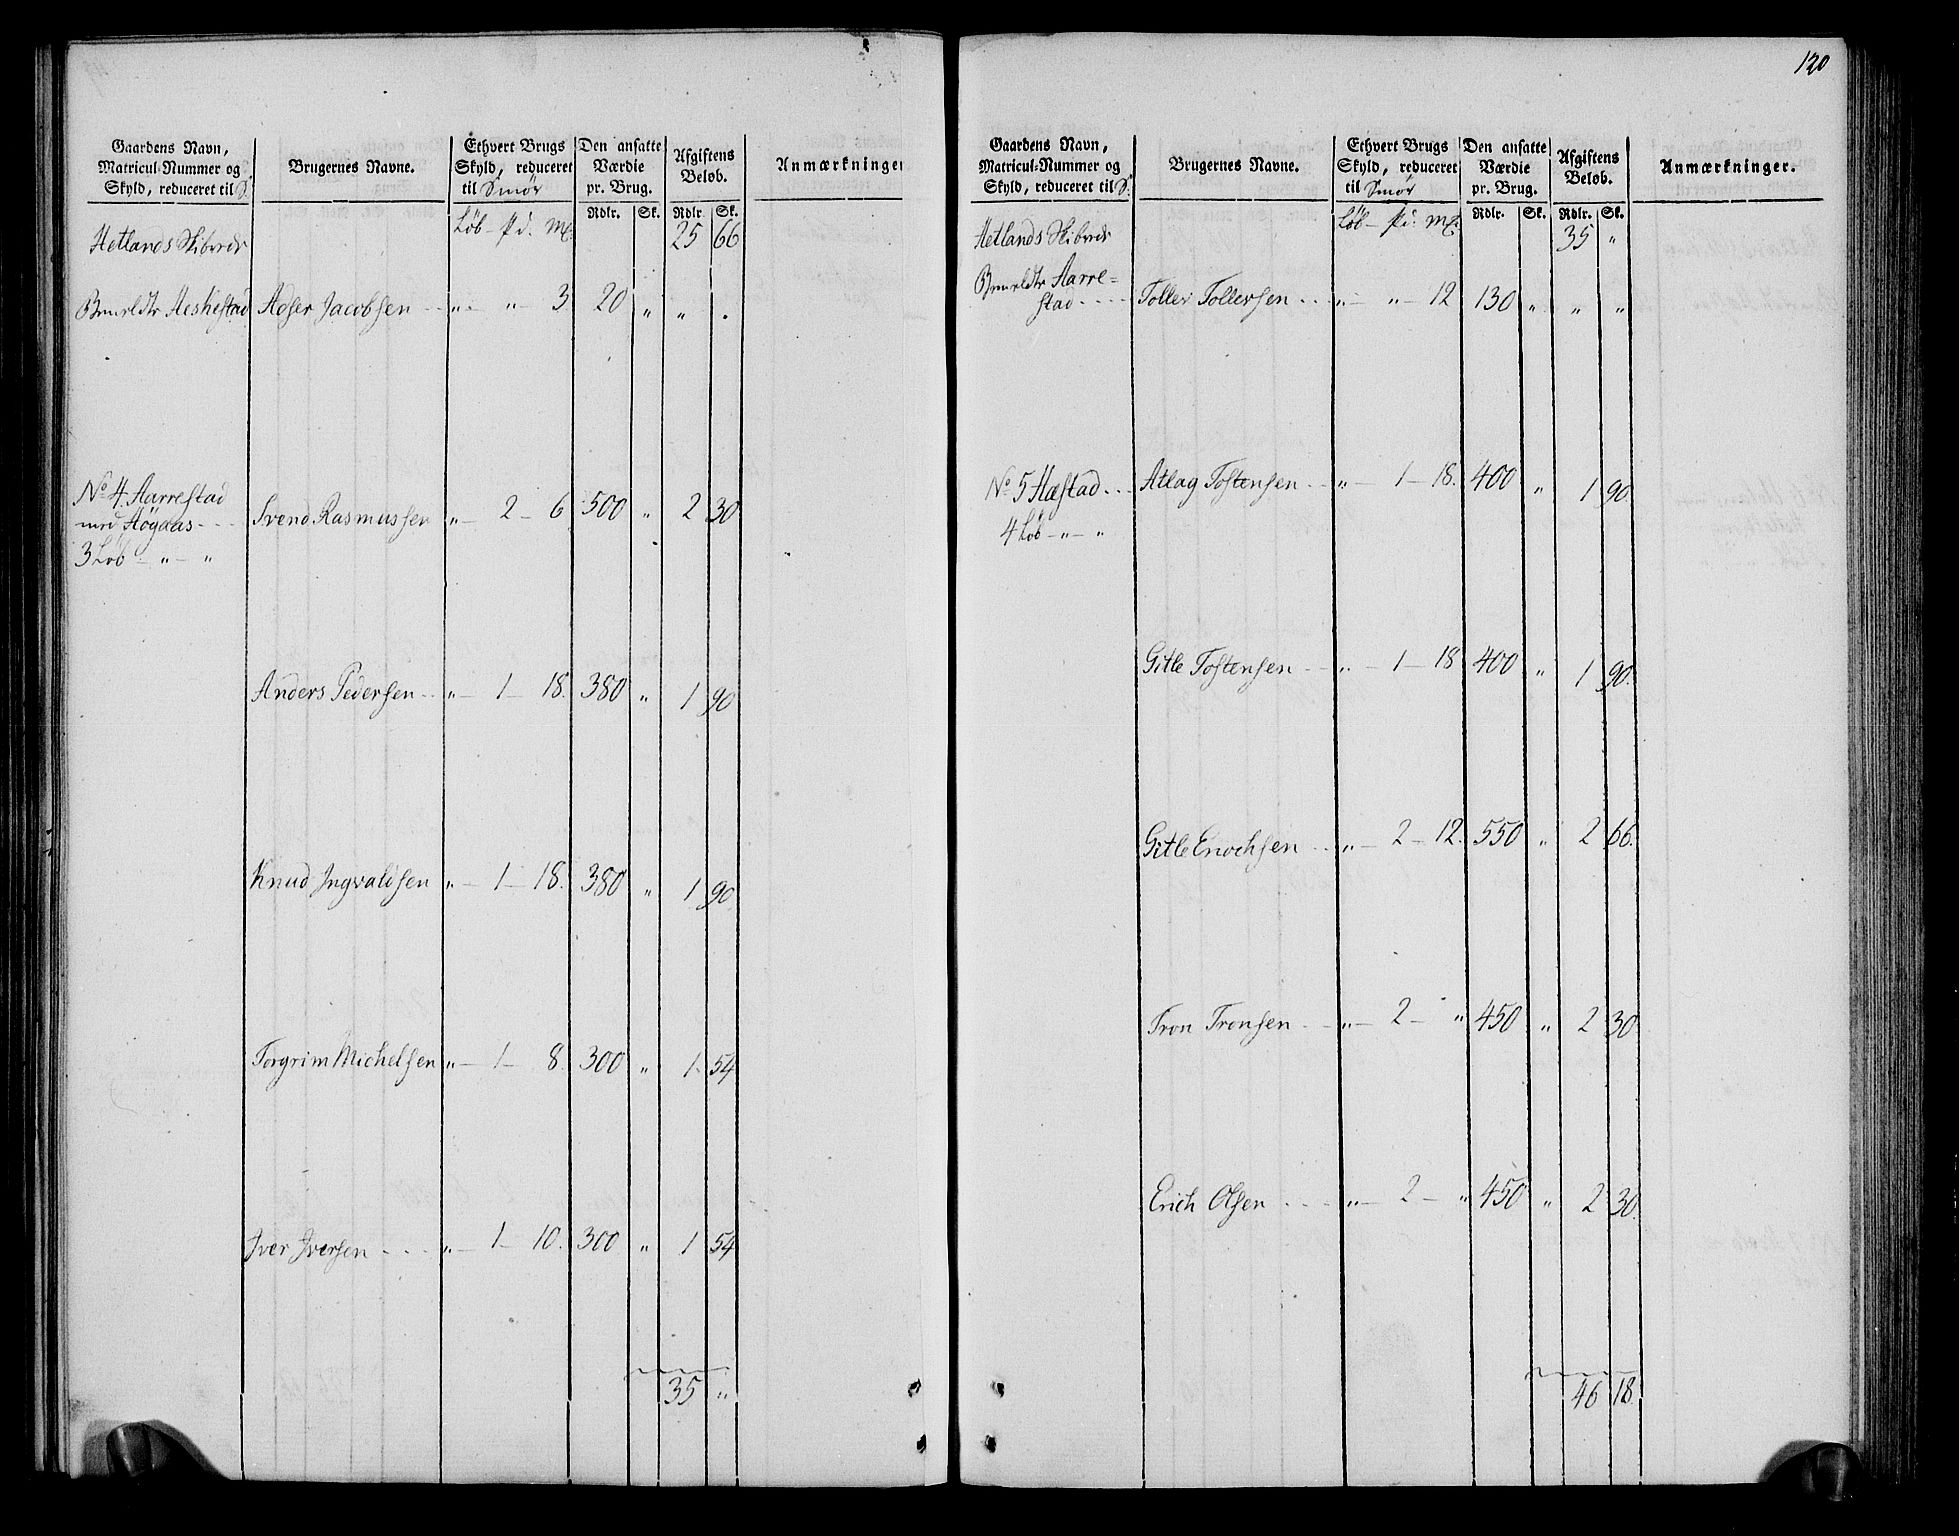 Gaardens Navn,
Matricul-Nummer og
Skyld, reduceret til S.
Brugernes Navne.
Ethvert Brugs
Skyld, reduceret
til Smör
Den ansatte
Værdie
pr. Brug.
Afgiftens
Beløb.
Anmærkninger
Rdlr. Sk. Rdlr. Sk.
Hetlands Skibrede Løb — Pd. Mk. 25 66
Aeskestad Adser Jacobsen „ — „ — 3 20 „ „ .
No 4. Aarrestad
med Høgaas Svend Rasmussen „ — 2 — 6 500 „ 2 30
3 Løb — „ — „
Anders Pedersen „ — 1 — 18. 380 „ 1 90
Knud Ingvaldsen „ — 1 — 18. 380 „ 1 90
Torgrim Michelsen „ — 1 — 8. 300 „ 1 54
Iver Iversen „ — 1 — 10. 300 „ 1 54
35 „
120
Gaardens Navn,
Matricul-Nummer og
Skyld, reduceret til S.
Brugernes Navne.
Ethvert Brugs
Skyld, reduceret
til Smör
Den ansatte
Værdie
pr. Brug.
Afgiftens
Beløb.
Anmærkninger.
Rdlr. Sk. Rdlr. Sk.
Hetlands Skibrede Løb — Pd. Mk. 35 „
Aarre=
stad Toller Tollersen „ — „ — 12 130 „ „ „
No 5 Hæstad Atlag Tostensen „ — 1 — 18. 400 „ 1 90.
4 Løb — „ — „
Gitle Tostensen „ — 1 — 18 400 „ 1 90.
Gitle Enochsen „ — 2 — 12. 550 „ 2 66.
Tron Tronsen „ — 2 — „ 450 „ 2 30
Erich Olsen „ — 2 — „ 450 „ 2 30.
46 18.